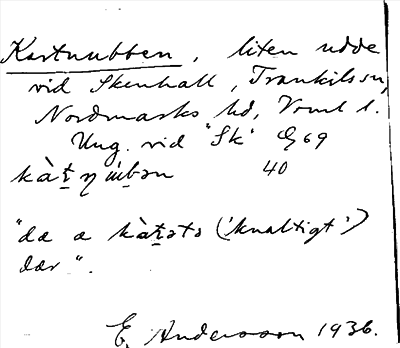 Kartnubben, liten udde
vid Skenhall, Trankils sn,
Nordmarks hd, Vrml l.
Ung. vid "Sk" G 69
40
"dæ æ kàt̲ətə ('knaltigt')
dær".
E. Andersson 1936.